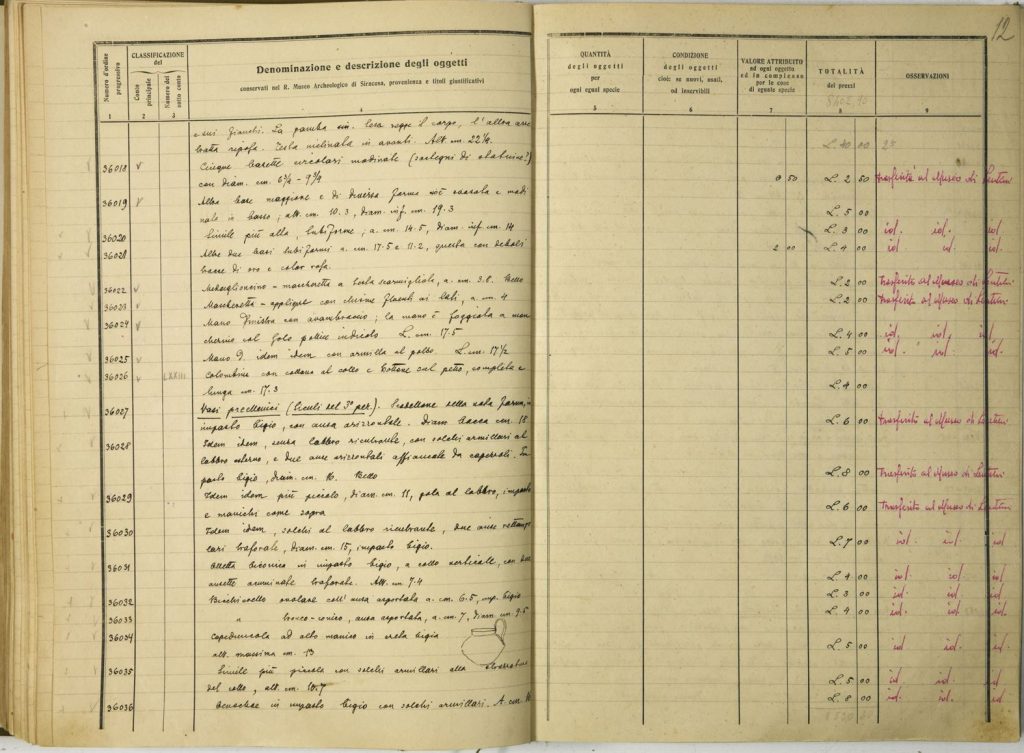 12
Numero d'ordine progressivo
CLASSIFICAZIONE del
Conto principale
Numero del sotto conto
Denominazione e descrizione degli oggetti
conservati nel R. Museo Archeologico di Siracusa, provenienza e titoli giustificativi
QUANTITÀ degli oggetti per ogni egual specie
CONDIZIONE degli oggetti cioè: se nuovi, usati, od inservibili
VALORE ATTRIBUITO ad ogni oggetto ed in complesso per le cose di eguale specie
TOTALITÀ dei prezzi
OSSERVAZIONI
1 2 3 4 5 6 7 8 9
e sui fianchi. La gamba sin. regge il corpo, l'altra
riposa. Testa inclinata in avanti. Alt. cm. 22 1/2
L. 40 00 25
36018 v Cinque basette circolari modinate (sostegni di statuine?)
con diam. cm. 6 1/2 - 9 1/2
0 50 L. 2 50 Trasferito al Museo di Lentini
36019 v Altra base maggiore e di diversa forma cioè cassata e modi
nata in basso; alt. cm. 10.3, diam. inf. cm. 19.3
L. 5 00
36020 Simile più alta, tubiforme; a. cm. 14.5, diam. inf. cm. 14
L. 3 00 id. id. id
36021 Altre due basi tubiformi a. cm. 17.5 e 11.2, questa con deboli
2 00 L. 4 00 id id id
tracce di oro e color rosa.
36022 v Medaglioncino - mascheretta a testa a. cm. 3.8. Bello
L. 2 00 Trasferito al Museo di Lentini
36023 v Mascheretta - applique con chiome fluenti ai lati, a. cm. 4
L. 2 00 Trasferito al Museo di Lentini
36024 v Mano sinistra con avambraccio; la mano è foggiata a man
chevno col solo pollice indicato L. cm. 17.5
L. 4 00 id. id id
36025 v Mano d. idem idem con armilla al polso. L. cm. 17 1/2
L. 5 00 id. id id.
36026 v LXXIII Colombina con collana al collo e bottone sul petto, completa e
lunga cm. 17.3
L. 4 00
36027 Vasi preellenici (Siculi del 3° per.). Scodellone della nota forma, in
impasto bigio, con ansa orizzontale. Diam. bocca cm. 18.
L. 6 00 Trasferito al Museo di Lentini
36028 Idem idem, senza labbro rientrante, con solchi armillari al
labbro esterno, e due anse orizzontali affiancate da capezzoli. Im
pasto bigio, diam. cm. 16. Bello
L. 8 00 Trasferito al Museo di Lentini
36029 Idem idem più piccolo, diam. cm. 11, al labbro, impasto
e manichi come sopra
L. 6 00 Trasferito al Museo di Lentini
36030 Idem idem, solchi al labbro rientrante, due anse rettango
lari traforate, diam. cm. 15, impasto bigio.
L. 7 00 id. id id
36031 Olletta biconica in impasto bigio, a collo verticale, con due
ansette traforate. Alt. cm. 7.4
L. 4 00 id id id
36032 ovolare coll'ansa asportata a. cm. 6.5, imp. bigio
L. 3 00 id. id id
36033 " tronco-conico, ansa asportata, a. cm. 7, diam. cm. 9.5
L. 4 00 id. id. id.
36034 Capeduncola ad alto manico in creta bigia
alt. massima cm. 13
L. 5 00 id id id.
36035 Simile più piccola con solchi armillari alla
del collo, alt. cm. 10.7
L. 5 00 id id id.
36036 Oenochoe in impasto bigio con solchi armillari. A. cm. 16
L. 8 00 id. id. id.